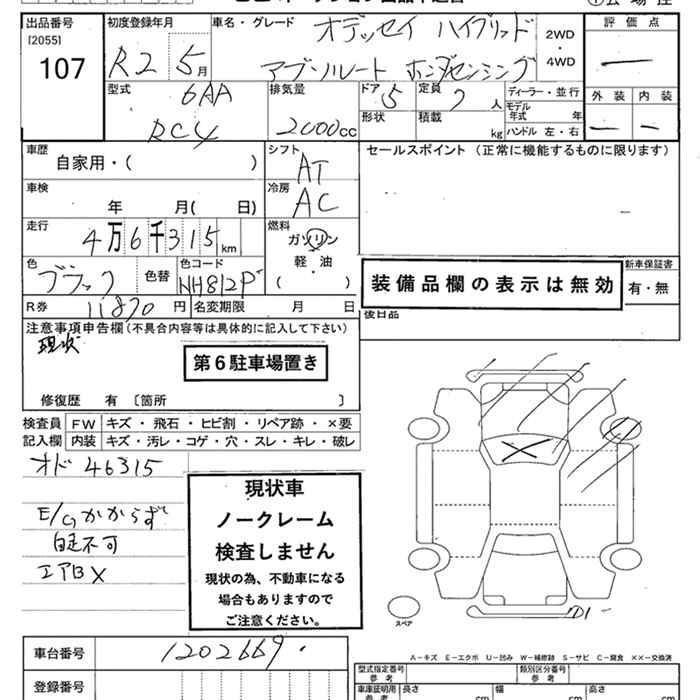 出品番号 [2055] 107
初度登録年月 R2 5月
車名・グレード オデッセイ ハイブリッド
アブソルート ホンダセンシング
2WD・4WD
評価点 ―
外装 ― 内装 ―
型式 6AA
RC4
排気量 2000cc
ドア 5
形状
定員 7人
積載 kg
ディーラー・並行
モデル年式 年
ハンドル 左・右
車歴 自家用・( )
シフト AT
セールスポイント (正常に機能するものに限ります)
車検 年 月( 日)
冷房 AC
走行 4万6千315km
燃料 ガソリン
軽・油
( )
色 ブラック 色替
色コード NH812P
装備品欄の表示は無効
新車保証書
有・無
R券 11870円 名変期限 月 日
後日品
注意事項申告欄(不具合内容等は具体的に記入して下さい)
現状
第6駐車場置き
修復歴 有 〔箇所 〕
検査員記入欄
FW キズ・飛石・ヒビ割・リペア跡・×要
内装 キズ・汚レ・コゲ・穴・スレ・キレ・破レ
オド 46315
E/Gかからず
自走不可
エアB X
現状車
ノークレーム
検査しません
現状の為、不動車になる
場合もありますので
ご注意ください。
スペア
D1
A-キズ E-エクボ U-凹み W-補修跡 S-サビ C-腐食 ××-交換済
車台番号 1202669
登録番号
型式指定番号 参考
類別区分番号 参考
車庫証明用 参考 長さ cm 幅 cm 高さ cm